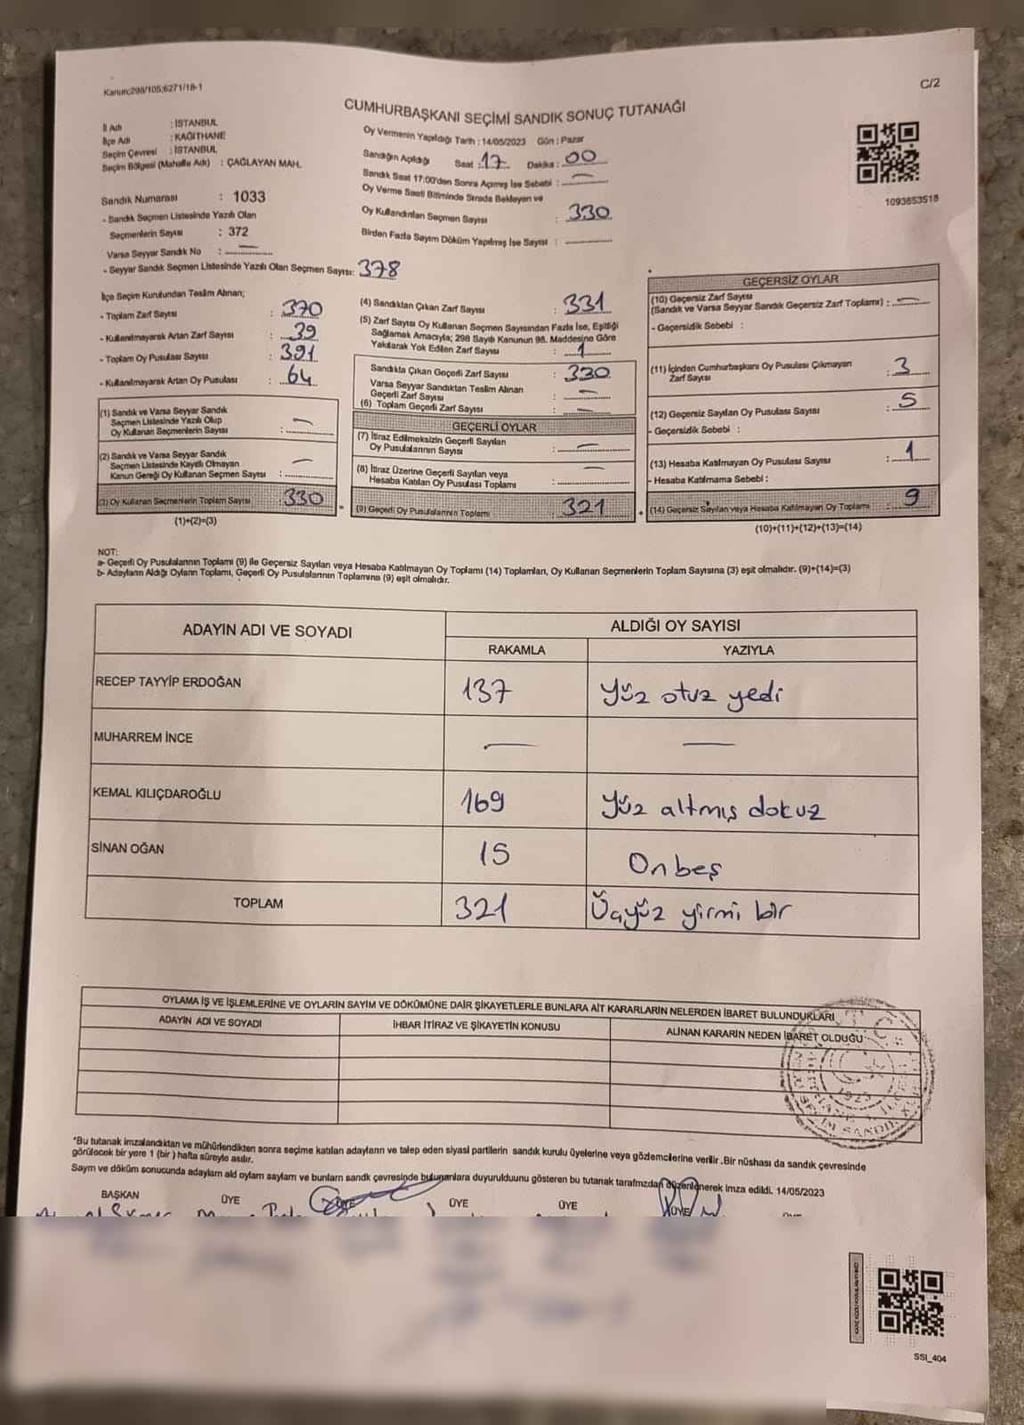 Kanun:298/105;6271/18-1
C/2
CUMHURBAŞKANI SEÇİMİ SANDIK SONUÇ TUTANAĞI
İl Adı : İSTANBUL
İlçe Adı : KAĞITHANE
Seçim Çevresi : İSTANBUL
Seçim Bölgesi (Mahalle Adı) : ÇAĞLAYAN MAH.
Sandık Numarası : 1033
- Sandık Seçmen Listesinde Yazılı Olan
Seçmenlerin Sayısı : 372
Varsa Seyyar Sandık No : —
- Seyyar Sandık Seçmen Listesinde Yazılı Olan Seçmen Sayısı: 378
Oy Vermenin Yapıldığı Tarih : 14/05/2023 Gün : Pazar
Sandığın Açıldığı Saat : 17 Dakika : 00
Sandık Saat 17:00'den Sonra Açılmış İse Sebebi : —
Oy Verme Saati Bitiminde Sırada Bekleyen ve
Oy Kullandırılan Seçmen Sayısı : 330
Birden Fazla Sayım Döküm Yapılmış İse Sayısı :
1093653518
İlçe Seçim Kurulundan Teslim Alınan;
- Toplam Zarf Sayısı : 370
- Kullanılmayarak Artan Zarf Sayısı : 39
- Toplam Oy Pusulası Sayısı : 391
- Kullanılmayarak Artan Oy Pusulası : 64
(1) Sandık ve Varsa Seyyar Sandık
Seçmen Listesinde Yazılı Olup
Oy Kullanan Seçmenlerin Sayısı : —
(2) Sandık ve Varsa Seyyar Sandık
Seçmen Listesinde Kayıtlı Olmayan
Kanun Gereği Oy Kullanan Seçmen Sayısı : —
(3) Oy Kullanan Seçmenlerin Toplam Sayısı : 330
(1)+(2)=(3)
(4) Sandıktan Çıkan Zarf Sayısı : 331
(5) Zarf Sayısı Oy Kullanan Seçmen Sayısından Fazla İse, Eşitliği
Sağlamak Amacıyla; 298 Sayılı Kanunun 98. Maddesine Göre
Yakılarak Yok Edilen Zarf Sayısı : 1
Sandıkta Çıkan Geçerli Zarf Sayısı : 330
Varsa Seyyar Sandıktan Teslim Alınan
Geçerli Zarf Sayısı : —
(6) Toplam Geçerli Zarf Sayısı : —
GEÇERLİ OYLAR
(7) İtiraz Edilmeksizin Geçerli Sayılan
Oy Pusulalarının Sayısı : —
(8) İtiraz Üzerine Geçerli Sayılan veya
Hesaba Katılan Oy Pusulası Toplamı : —
(9) Geçerli Oy Pusulalarının Toplamı : 321
GEÇERSİZ OYLAR
(10) Geçersiz Zarf Sayısı
(Sandık ve Varsa Seyyar Sandık Geçersiz Zarf Toplamı) : —
- Geçersizlik Sebebi :
(11) İçinden Cumhurbaşkanı Oy Pusulası Çıkmayan
Zarf Sayısı : 3
(12) Geçersiz Sayılan Oy Pusulası Sayısı : 5
- Geçersizlik Sebebi :
(13) Hesaba Katılmayan Oy Pusulası Sayısı : 1
- Hesaba Katılmama Sebebi :
(14) Geçersiz Sayılan veya Hesaba Katılmayan Oy Toplamı : 9
(10)+(11)+(12)+(13)=(14)
NOT:
a- Geçerli Oy Pusulalarının Toplamı (9) ile Geçersiz Sayılan veya Hesaba Katılmayan Oy Toplamı (14) Toplamları, Oy Kullanan Seçmenlerin Toplam Sayısına (3) eşit olmalıdır. (9)+(14)=(3)
b- Adayların Aldığı Oyların Toplamı, Geçerli Oy Pusulalarının Toplamına (9) eşit olmalıdır.
ADAYIN ADI VE SOYADI
ALDIĞI OY SAYISI
RAKAMLA YAZIYLA
RECEP TAYYİP ERDOĞAN 137 Yüz otuz yedi
MUHARREM İNCE — —
KEMAL KILIÇDAROĞLU 169 Yüz altmış dokuz
SİNAN OĞAN 15 Onbeş
TOPLAM 321 Üçyüz yirmi bir
OYLAMA İŞ VE İŞLEMLERİNE VE OYLARIN SAYIM VE DÖKÜMÜNE DAİR ŞİKAYETLERLE BUNLARA AİT KARARLARIN NELERDEN İBARET BULUNDUKLARI
ADAYIN ADI VE SOYADI İHBAR İTİRAZ VE ŞİKAYETİN KONUSU ALINAN KARARIN NEDEN İBARET OLDUĞU
T.C.
1923
*Bu tutanak imzalandıktan ve mühürlendikten sonra seçime katılan adayların ve talep eden siyasi partilerin sandık kurulu üyelerine veya gözlemcilerine verilir .Bir nüshası da sandık çevresinde
görülecek bir yere 1 (bir ) hafta süreyle asılır.
Sayım ve döküm sonucunda adayların aldı oyların sayıların ve bunların sandık çevresinde bulunanlara duyurulduunu gösteren bu tutanak tarafımızdan düzenlenerek imza edildi. 14/05/2023
BAŞKAN ÜYE ÜYE ÜYE ÜYE
SSI_404